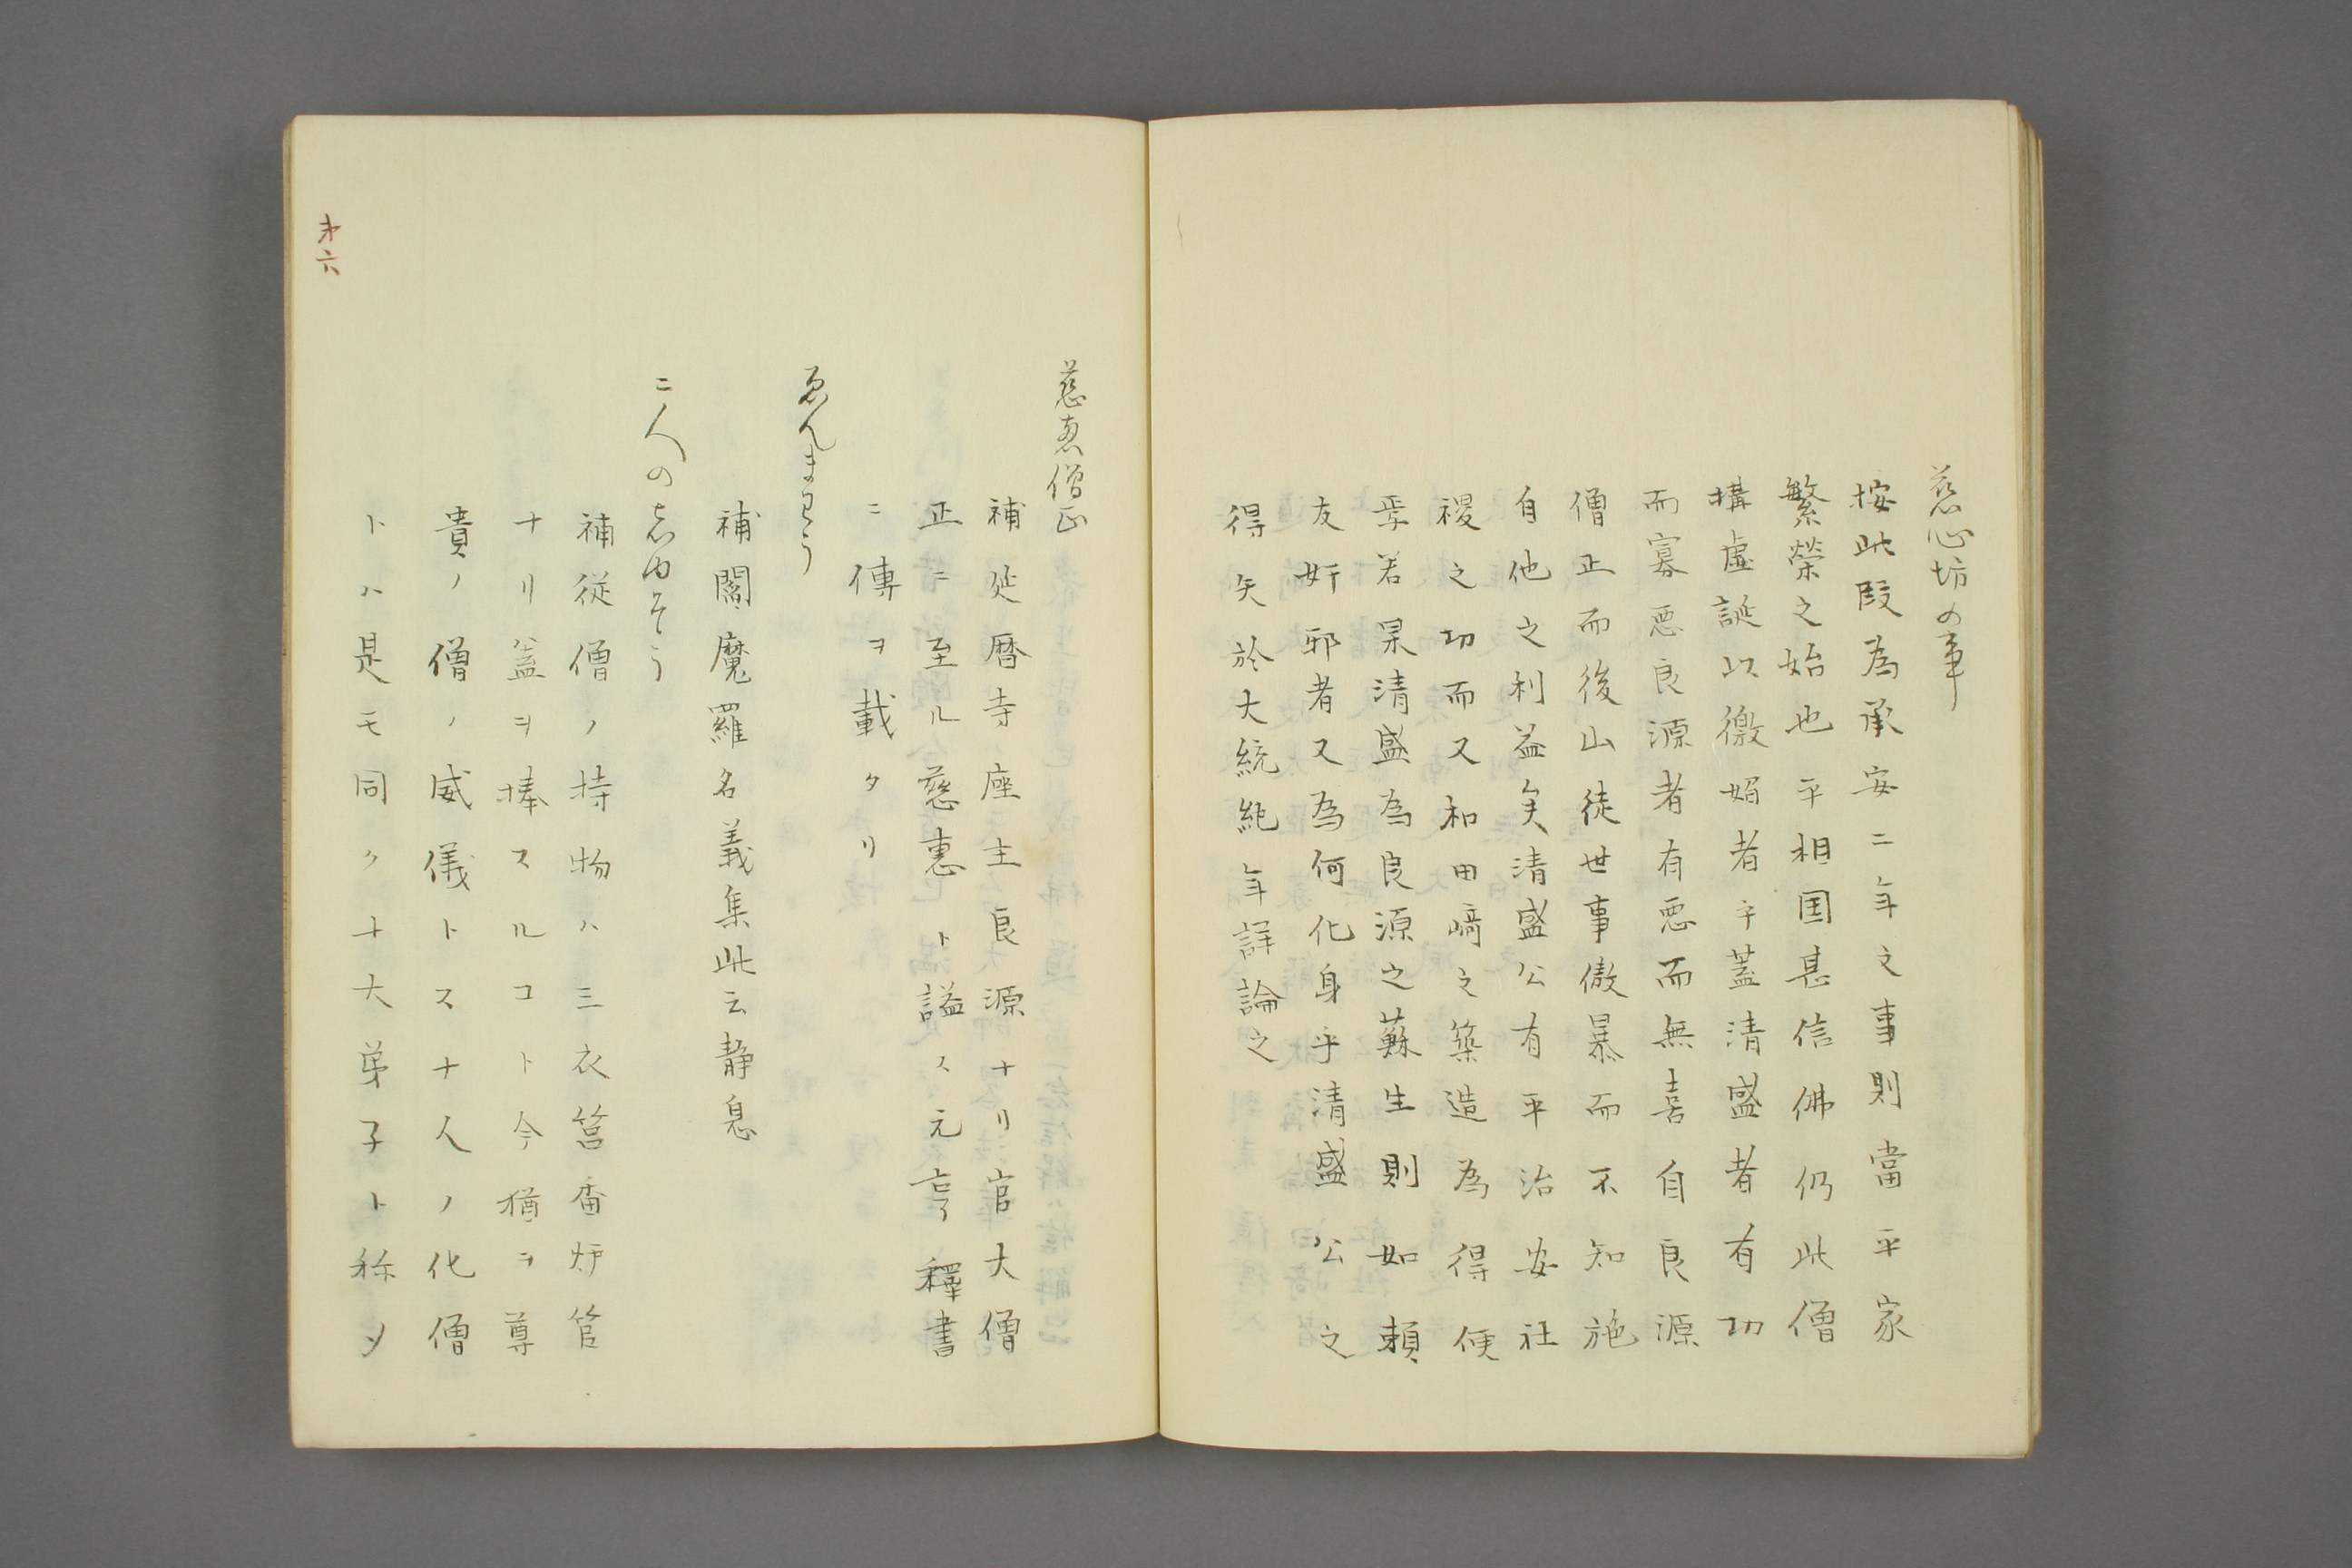 慈心坊の事
按此段為承安二年之事則當平家
繁榮之始也平相国甚信佛仍此僧
構虚誕以徼媚者乎蓋清盛者有功
而寡悪良源者有悪而無善自良源
僧正而後山徒世事傲暴而不知施
自他之利益矣清盛公有平治安社
稷之功而又和田﨑之築造為得便
焉若果清盛為良源之蘇生則如頼
友奸邪者又為何化身乎清盛公之
得矢於大統紀年詳論之
慈恵僧正
補延暦寺座主良源ナリ官大僧
正ニ至ル慈恵ト謚ス元亨釋書
ニ傳ヲ載タリ
ゑんまわう
補閻魔羅名義集此云静息
二人の志ゆそう
補従僧ノ持物ハ三衣筥香炉筥
ナリ盖ヲ捧スルコト今猶ヲ尊
貴ノ僧ノ威儀トス十人ノ化僧
トハ是モ同ク十大弟子ト称〆
㐧六